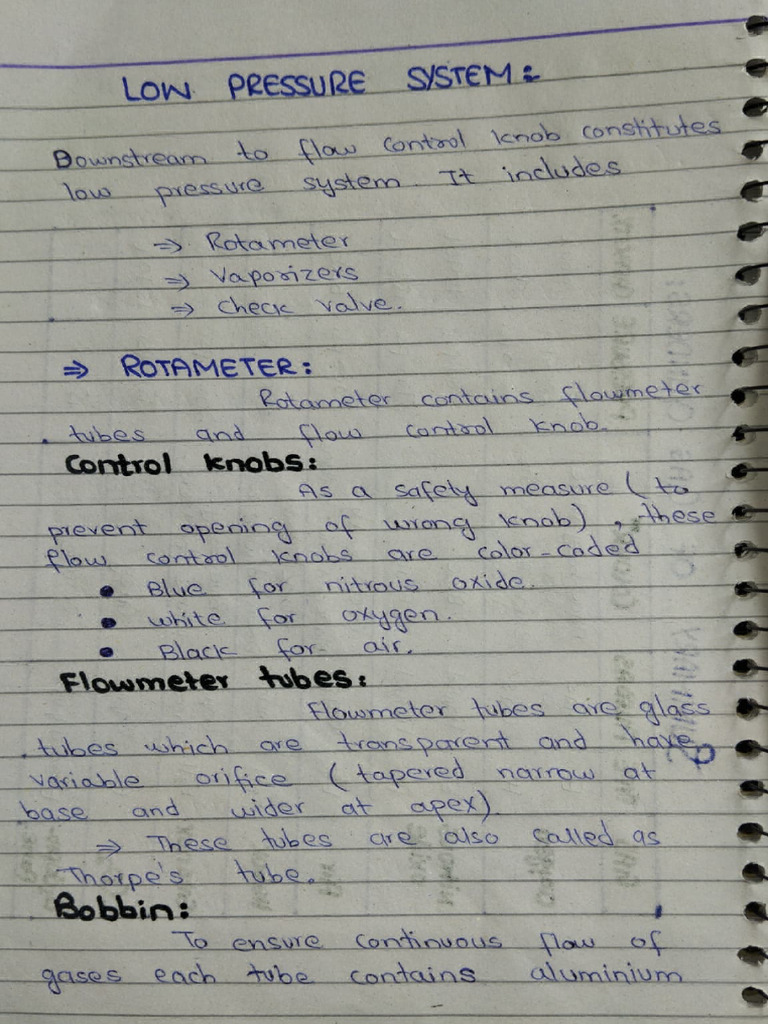 LOW PRESSURE SYSTEM:
Downstream to flow control knob constitutes
low pressure system. It includes
⇒ Rotameter
⇒ Vaporizers
⇒ Check valve.
⇒ ROTAMETER:
Rotameter contains flowmeter
tubes and flow control knob.
Control knobs:
As a safety measure (to
prevent opening of wrong knob), these
flow control knobs are color-coded
• Blue for nitrous oxide.
• White for oxygen.
• Black for air.
Flowmeter tubes:
Flowmeter tubes are glass
tubes which are transparent and have
variable orifice (tapered narrow at
base and wider at apex).
⇒ These tubes are also called as
Thorpe's tube.
Bobbin:
To ensure continuous flow of
gases each tube contains aluminium